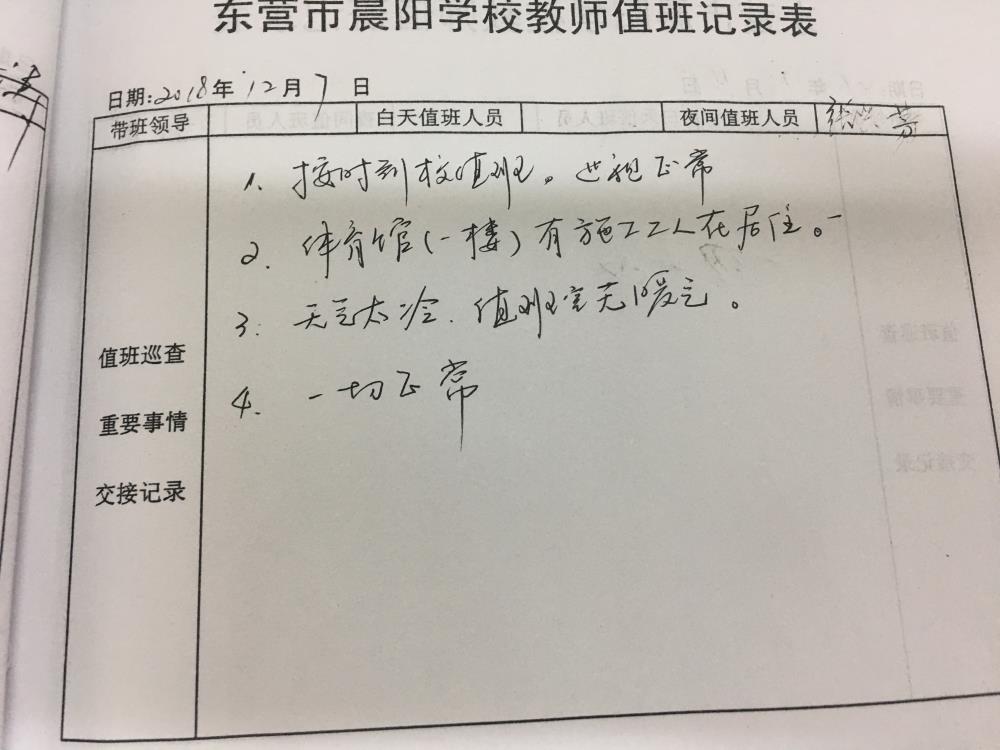 东营市晨阳学校教师值班记录表
日期:2018年12月7日
带班领导 白天值班人员 夜间值班人员
1. 按时到校值班。巡视正常
2. 体育馆(一楼)有施工工人在居住。
3. 天气太冷.值班室无暖气。
4. 一切正常
值班巡查
重要事情
交接记录